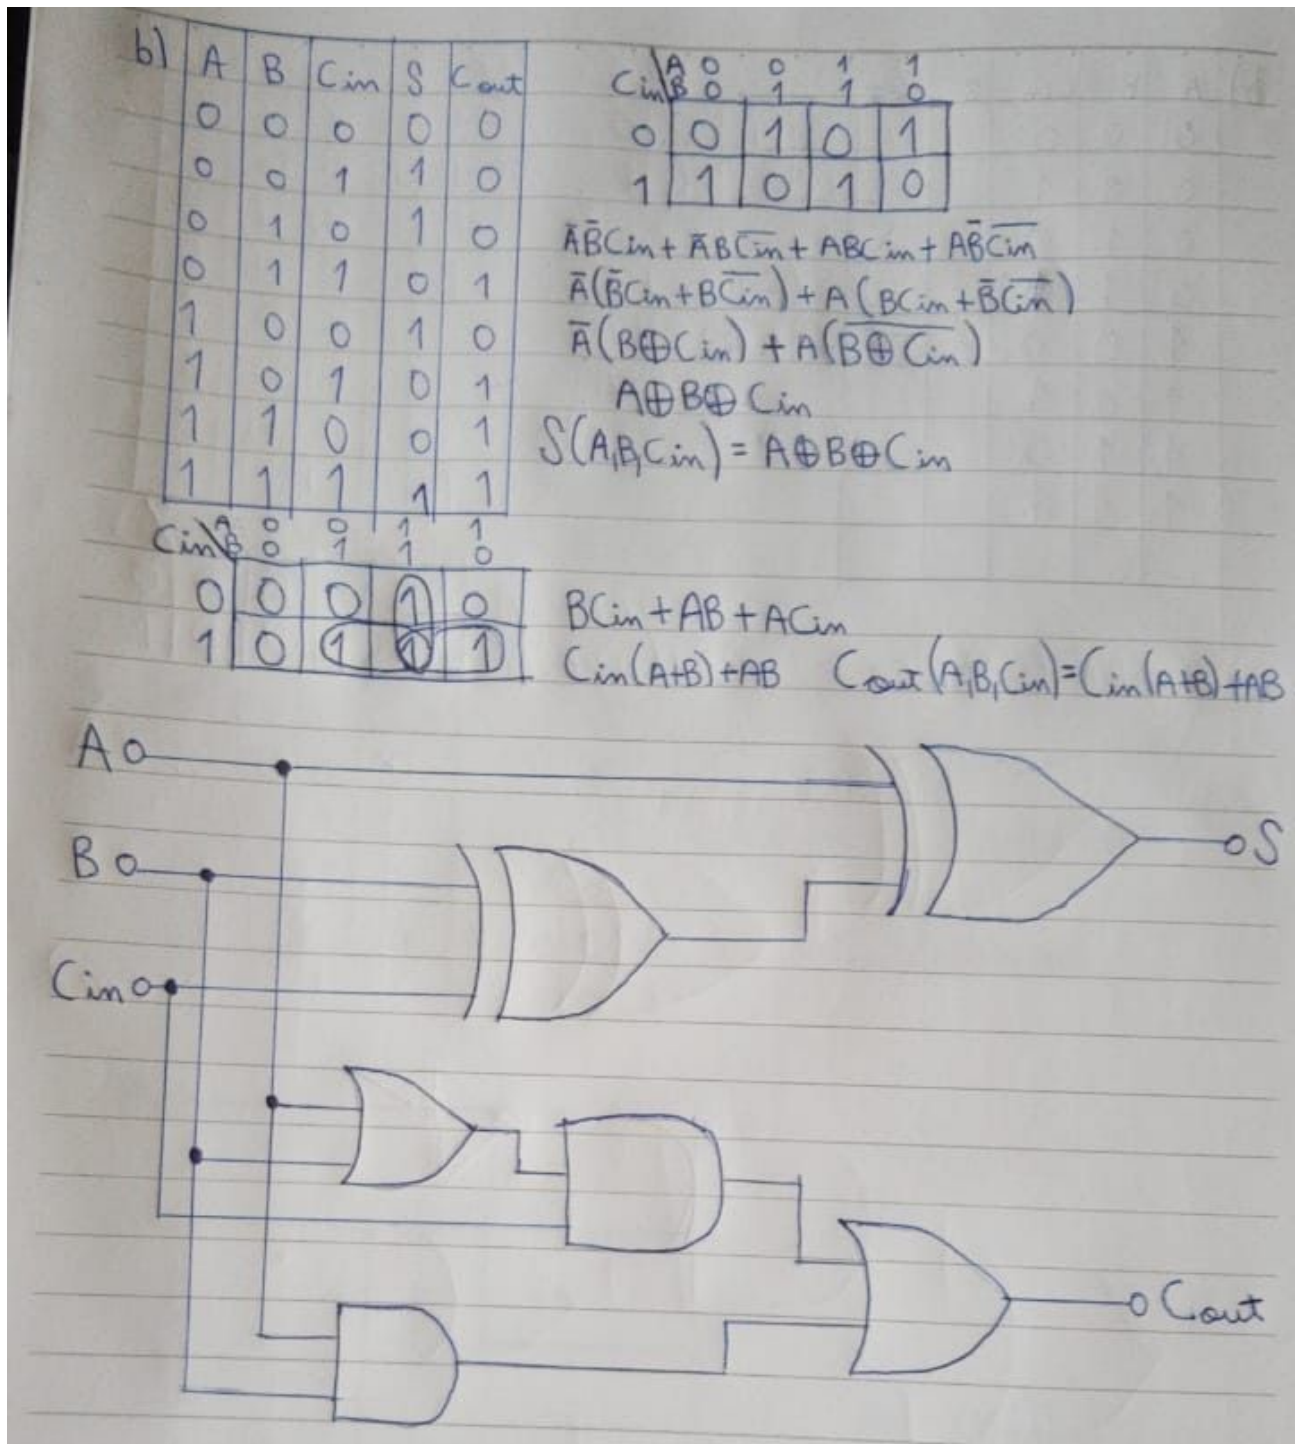 b) A B Cin S Cout
0 0 0 0 0
0 0 1 1 0
0 1 0 1 0
0 1 1 0 1
1 0 0 1 0
1 0 1 0 1
1 1 0 0 1
1 1 1 1 1
A 0 0 1 1
Cin\B 0 1 1 0
0 0 1 0 1
1 1 0 1 0
A̅B̅Cin + A̅BC̅i̅n̅ + ABCin + AB̅C̅i̅n̅
A̅(B̅Cin + BC̅i̅n̅) + A(BCin + B̅C̅i̅n̅)
A̅(B⊕Cin) + A(B̅⊕̅C̅i̅n̅)
A⊕B⊕Cin
S(A,B,Cin) = A⊕B⊕Cin
A 0 0 1 1
Cin\B 0 1 1 0
0 0 0 1 0
1 0 1 1 1
BCin + AB + ACin
Cin(A+B) + AB Cout(A,B,Cin) = Cin(A+B) + AB
A
S
B
Cin
Cout